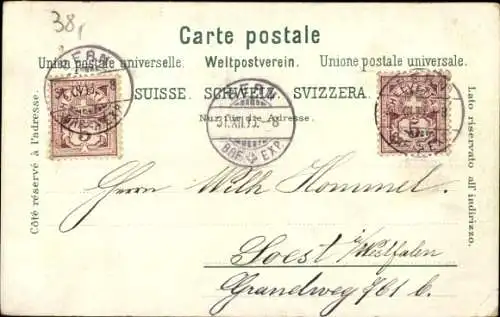 38,
Carte postale
Union postale universelle. Weltpostverein. Unione postale universale.
SUISSE. SCHWEIZ. SVIZZERA.
Nur für die Adresse.
Côté réservé à l'adresse.
Lato riservato all' indirizzo.
BERN
BRF. EXP.
5
5
BERN
31.XII.95. - 8
BRF. EXP.
Herrn Wilh Hommel
Soest i/Westfalen
Grandweg 761 b.